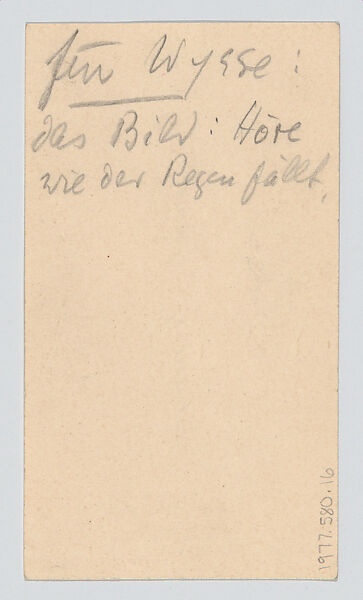 für Wysse:
das Bild: Höre
wie der Regen fällt.
1977.580.16